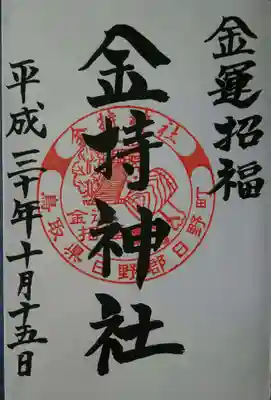 金運招福
金持神社
平成三十年十月十五日
鳥取県日野郡日野町